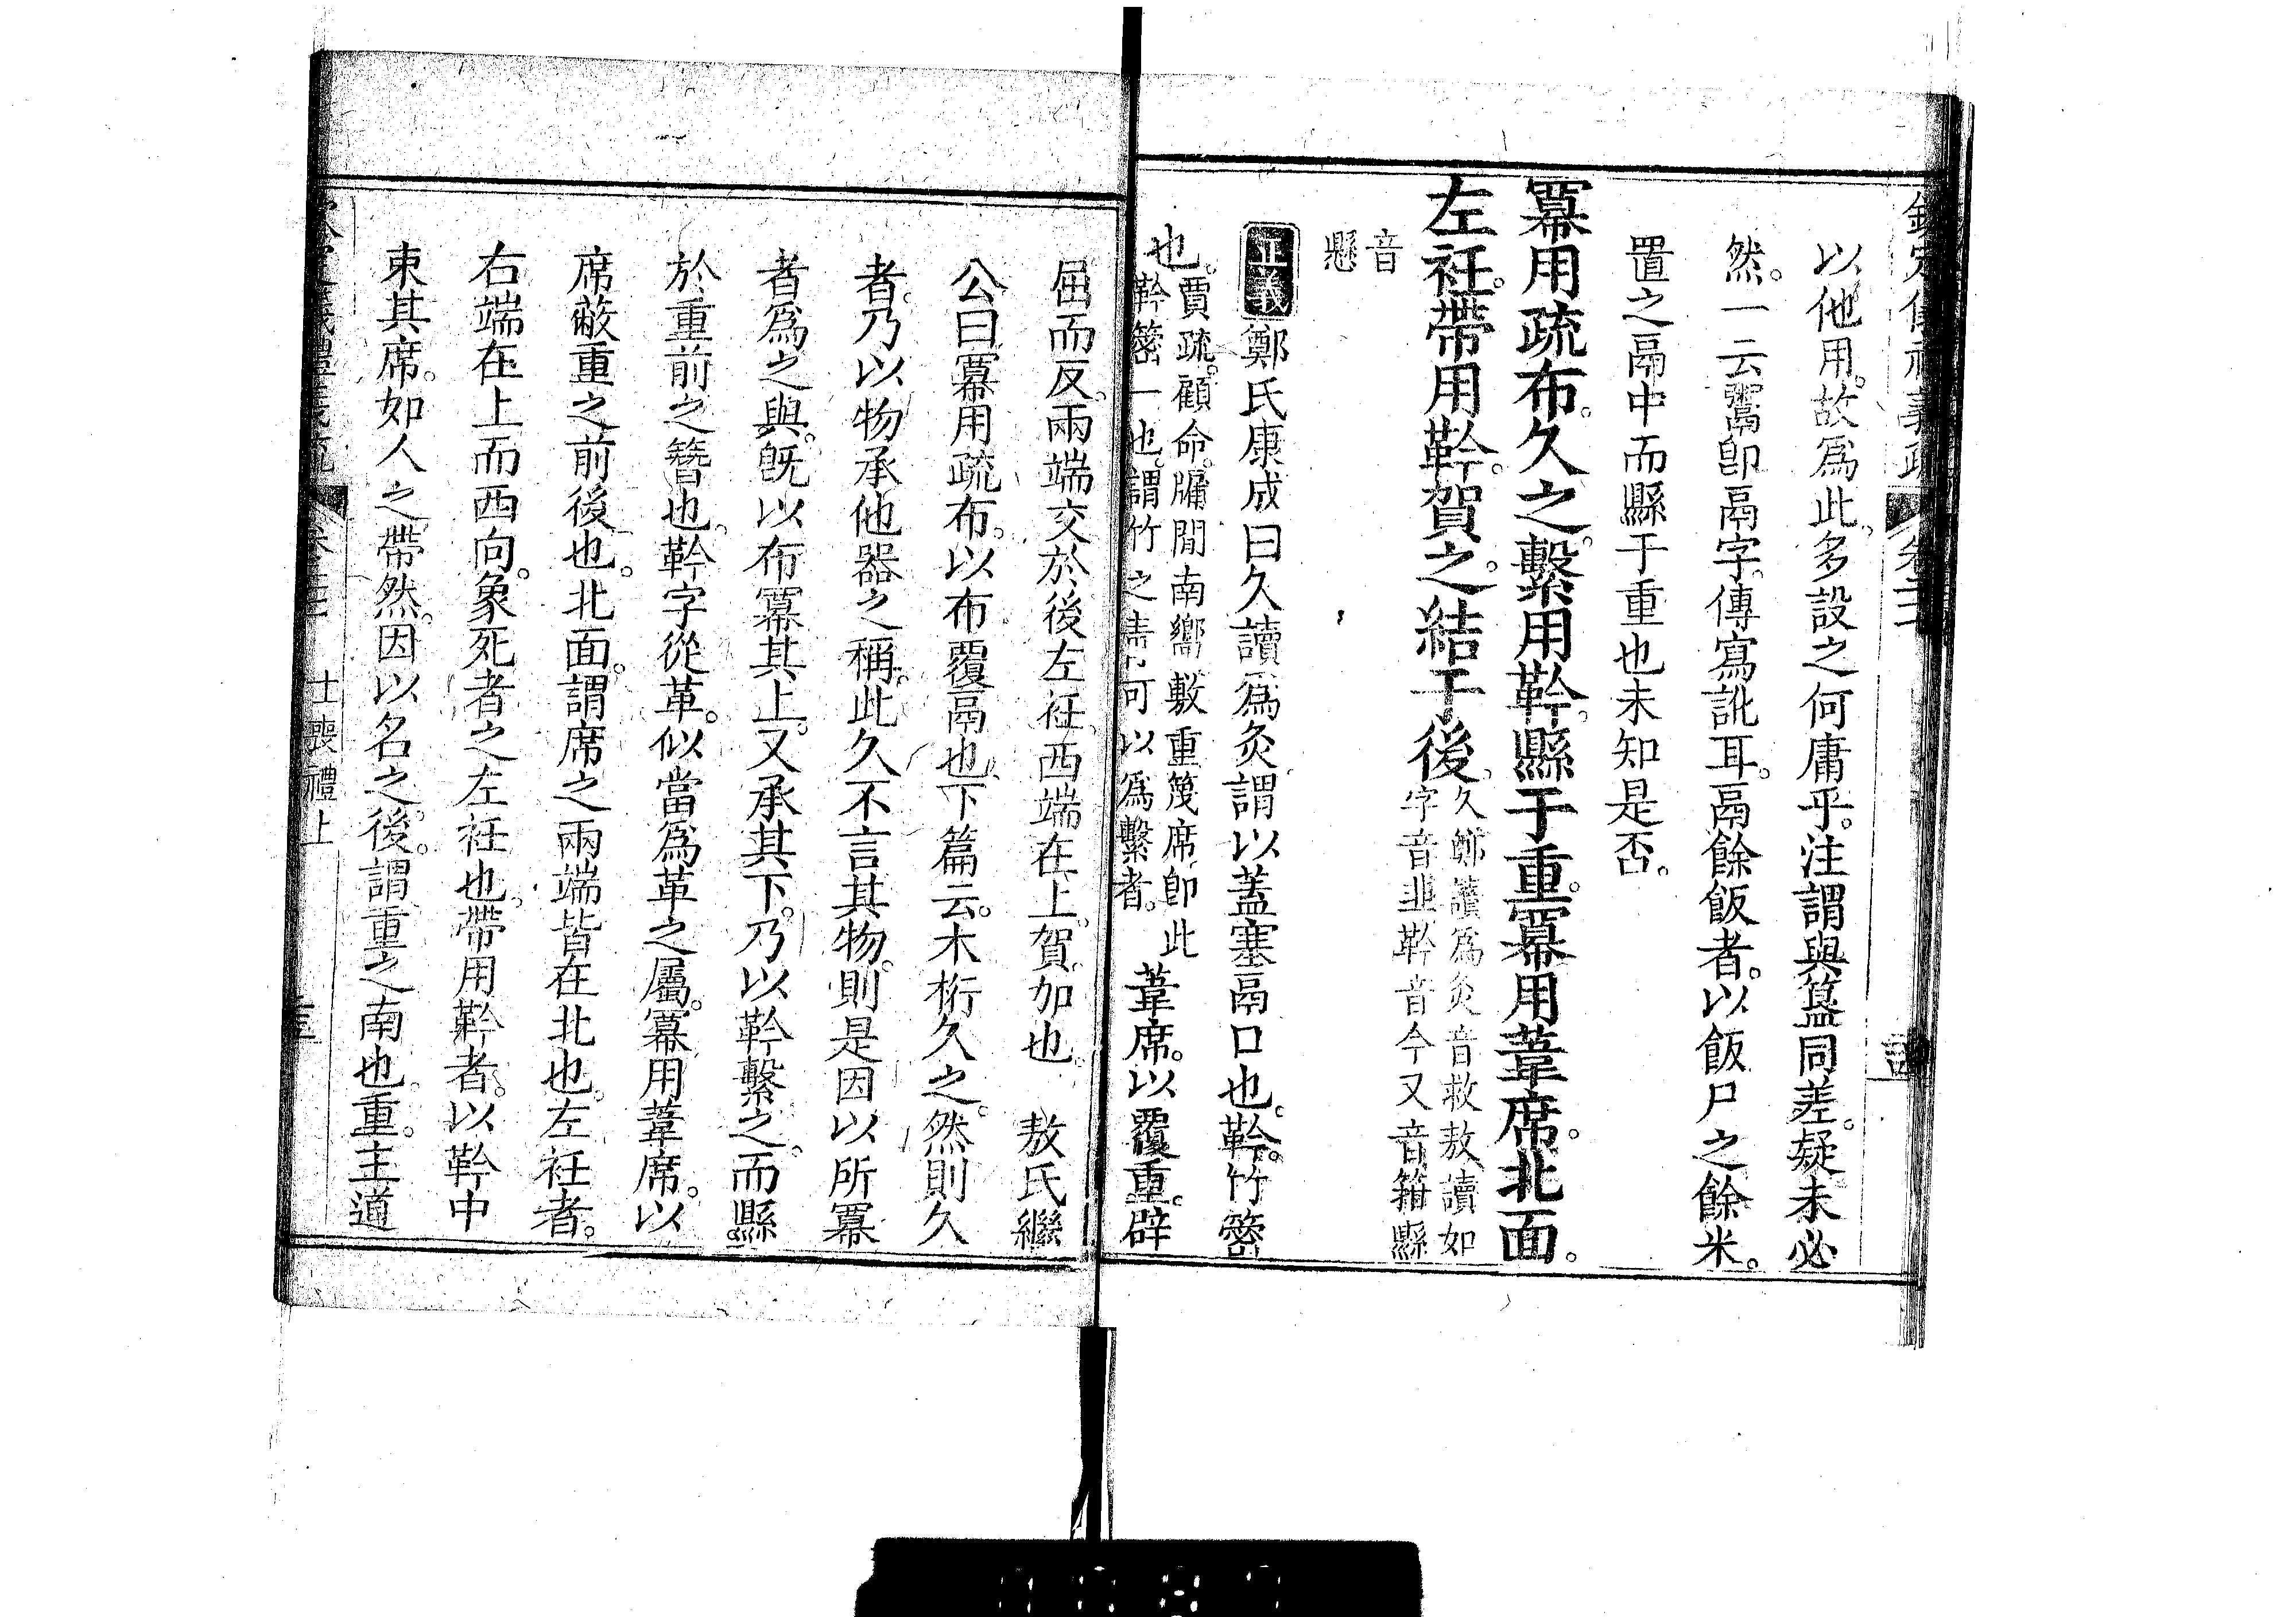 以他用。故爲此。多設之何庸乎。注謂與簋同差。疑未必
然。一云鬻卽鬲字。傳寫訛耳。鬲餘飯者。以飯尸之餘米。
置之鬲中而縣于重也未知是否。
冪用疏布。久之。繫用靲。縣于重。冪用葦席。北面。
左衽。帶用靲。賀之。結于後。久鄭讀爲灸音救敖讀如
字音韭靲音今又音箝縣
音
懸
正義鄭氏康成曰久讀爲灸。謂以蓋塞鬲口也。靲。竹䈼
也。賈疏。顧命。牖間南嚮敷重篾席。卽此
靲䈼一也。謂竹之靑可以爲繫者。葦席。以覆重。辟
屈而反。兩端交於後左衽。西端在上。賀。加也。敖氏繼
公曰冪用疏布。以布覆鬲也。下篇云。木桁久之。然則久
者。乃以物承他器之稱。此久不言其物。則是因以所冪
者爲之與。旣以布冪其上。又承其下。乃以靲繫之。而縣
於重前之簪也。靲字從革。似當爲革之屬。冪用葦席。以
席蔽重之前後也。北面。謂席之兩端皆在北也。左衽者。
右端在上而西向。象死者之左衽也。帶用靲者。以靲中
束其席。如人之帶然。因以名之。後。謂重之南也。重。主道
士喪禮上